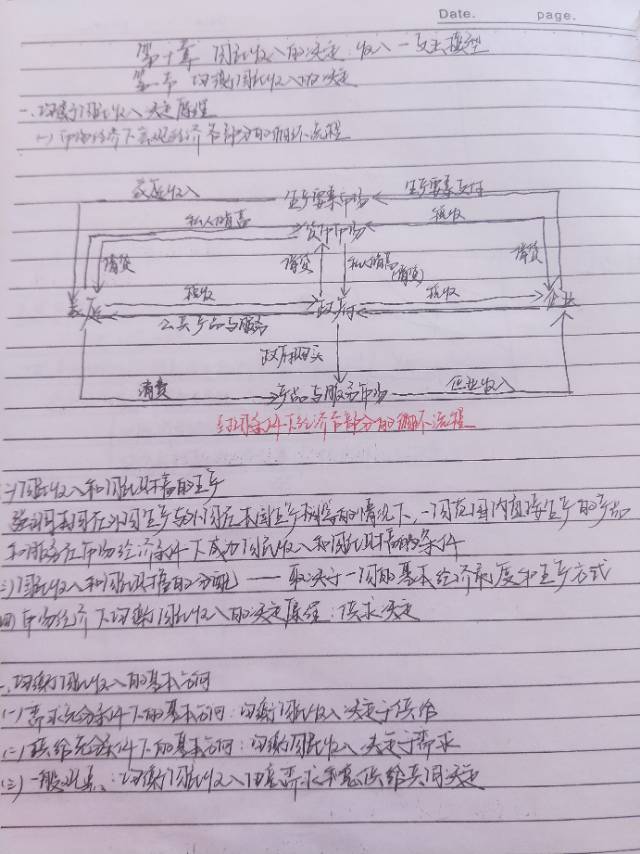 Date. page.
第十章 国民收入的决定:收入—支出模型
第一节 均衡国民收入的决定
一、均衡国民收入决定原理
(一)市场经济下宏观经济各部分的循环流程
家庭收入 生产要素市场 生产要素支付
私人储蓄 货币市场 税收
借贷 借贷 私人储蓄 借贷
(借贷)
家庭 税收 政府 税收 企业
公共产品与服务
政府购买
消费 产品与服务市场 企业收入
封闭条件下经济各部分的循环流程
(二)国民收入和国民财富的生产
假设本国在外国生产与外国在本国生产相等的情况下,一国范围内直接生产的产品
和服务在市场经济条件下成为国民收入和国民财富的条件
(三)国民收入和国民财富的分配——取决于一国的基本经济制度和生产方式
(四)市场经济下均衡国民收入的决定原理:供求决定
二、均衡国民收入的基本
(一)需求充分条件下的基本:均衡国民收入决定于供给
(二)供给充分条件下的基本:均衡国民收入决定于需求
(三)一般:均衡国民收入由总需求和总供给共同决定